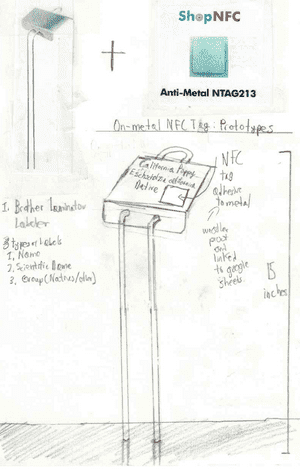 ShopNFC
Anti-Metal NTAG213
On-metal NFC Tag: Prototypes
California Poppy
Eschscholzia californica
Native
NFC
tag
adhesive
to metal
weather
proof
and
linked
to google
sheets.
15
inches
1. Brother Laminator
Labeler
3 types of Labels
1. Name
2. Scientific Name
3. Group (Natives/other)